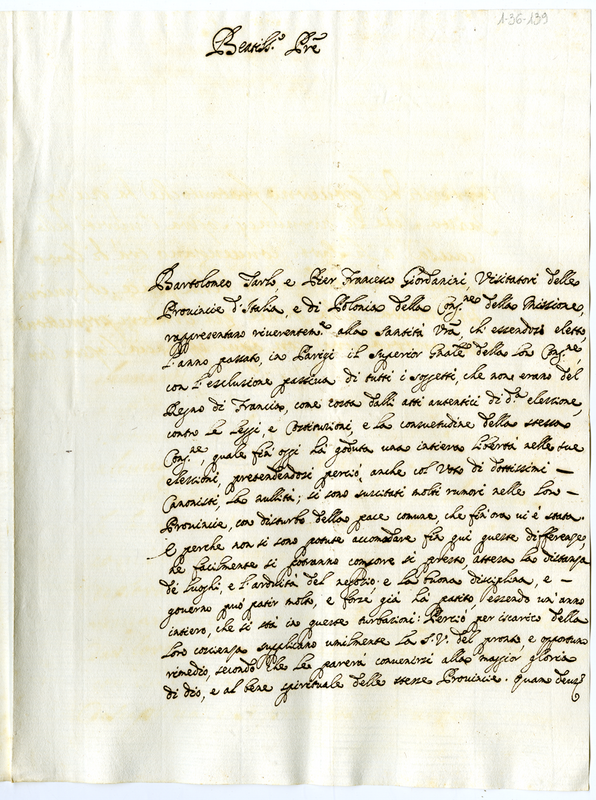 1-36-139
Beatiss.º Pre
Bartolomeo Tarlo, e Pier Francesco Giordanini, Visitatori delle
Provincie d'Italia, e di Polonia della Cong.ne della Missione,
rappresentano riverentem.e alla Santità Vra, ch'essendosi eletto
l'anno passato, in Parigi il Superior Gnale della lor Cong.ne,
con l'esclusione passiva di tutti i soggetti, che non erano del
Regno di Francia, come costa dalli atti autentici di d.a elezione,
contro le leggi, e Costituzioni, e la consuetudine della stessa
Cong.ne, quale fin'oggi hà goduta una intiera libertà nelle sue
elezzioni, pretendendosi perciò, anche col Voto di dottissimi –
Canonisti, la nullità; si sono suscitati molti rumori nelle lor –
Provincie, con disturbo della pace comune, che fin'ora vi è stata.
E perche non si sono potute accomodare fin qui queste differenze,
ne facilmente si potranno comporre si presto, attesa la distanza
de' luoghi, e l'arduità del negozio e la buona disciplina, e –
governo può patir molto, e forse già hà patito essendo un'anno
intiero, che si stà in queste turbazioni: Perciò per iscarico della
loro coscienza supplicano umilmente la S. V. del pronto, e opportuno
rimedio, secondo che le parerà convenirsi alla maggior gloria
di dio, e al bene spirituale delle stesse Provincie. Quam deus